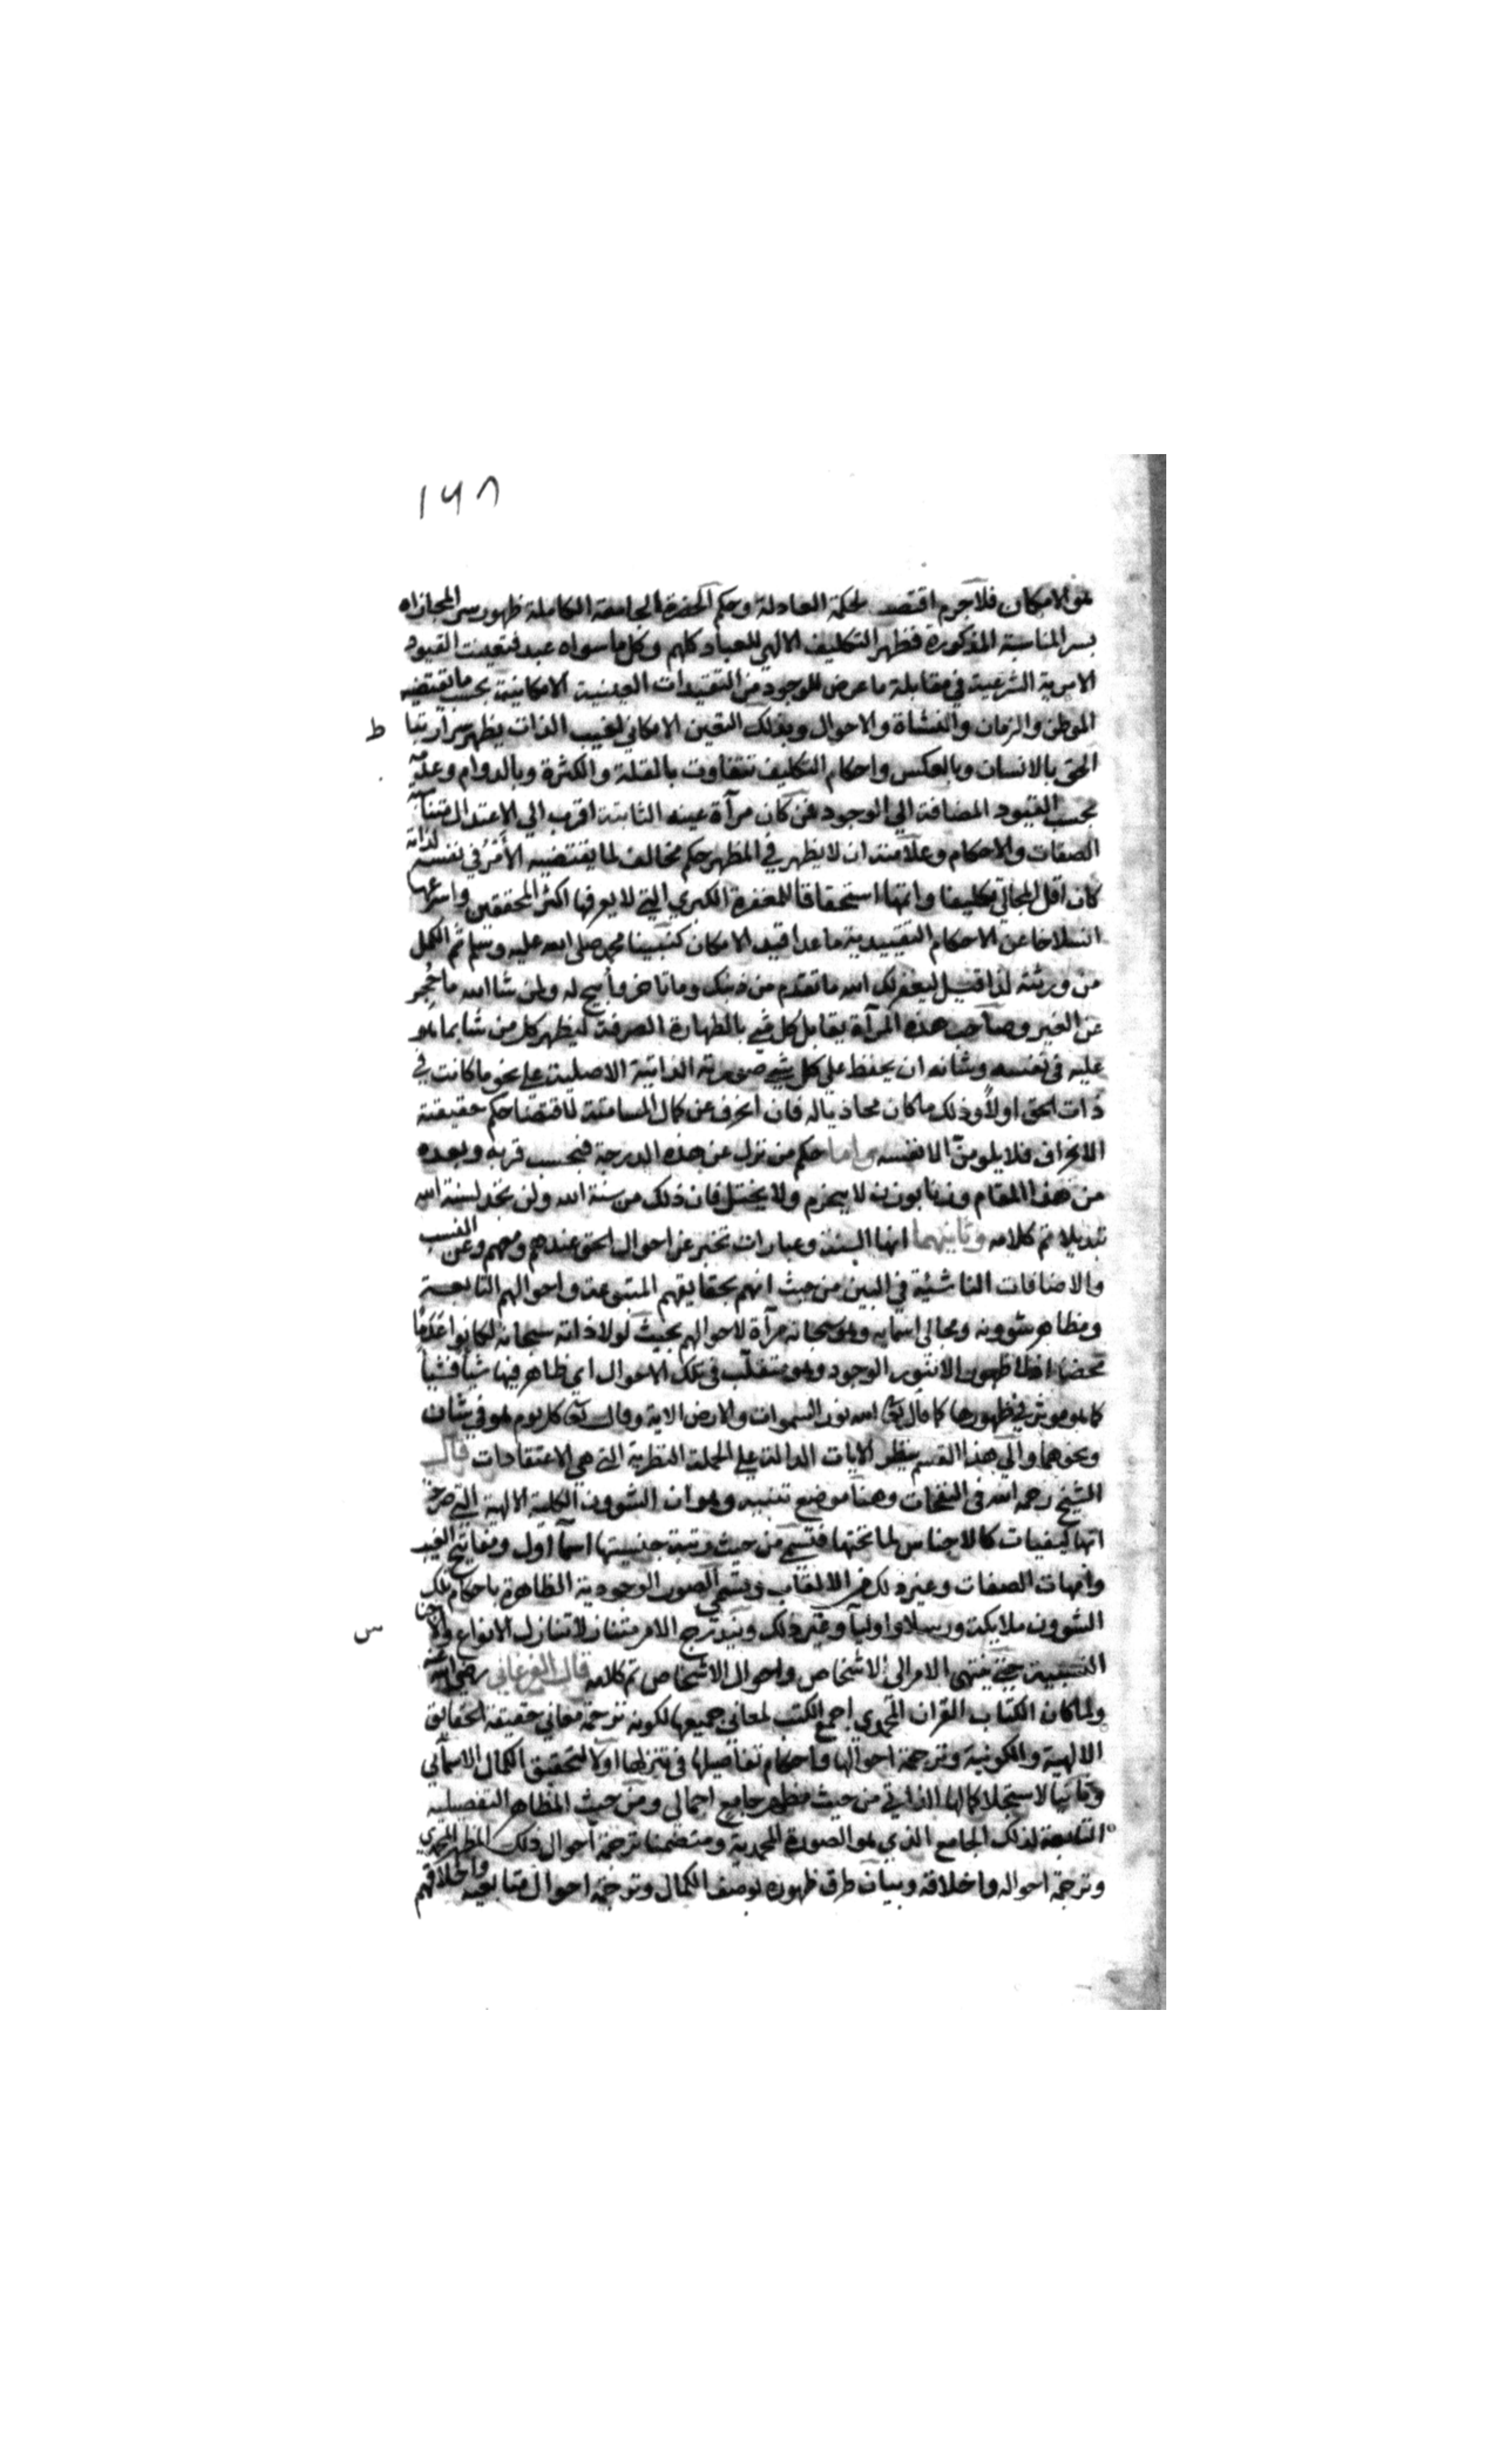 ١٦٨
هو الامكان فلا جرم اقتضت الحكمة العادلة وحكم الحضرة الجامعة الكاملة ظهور سر المجازاه
بسر المناسبة المذكورة فظهر التكليف الالهي للعباد كلهم وكل ما سواه عبد فتعينت القيود
الامرية الشرعية في مقابلة ما عرض للوجود من التقييدات العينية الامكانية بحسب ما تقتضيه
الموطن والزمان والنشاة والاحوال وبذلك التعين الامكاني لغيب الذات يظهر سر ارتباط
ط
الحق بالانسان وبالعكس واحكام التكليف تتفاوت بالقلة والكثرة وبالدوام وعدمه
بحسب القيود المضافة الي الوجود فمن كان مرآة عينه الثابتة اقرب الي الاعتدال
الصفات والاحكام وعلامته ان لا يظهر في المظهر حكم مخالف لما يقتضيه الأمر في نفسه لذاته
كان اقل المجالي تكليفا واتمها استحقاقا للمغفرة الكبري التي لا يعرفها اكثر المحققين واسرعها
انسلاخا عن الاحكام التقييدية ما عدا قيد الامكان كنبينا محمد صلى الله عليه وسلم ثم الكمل
من ورثته لذا قيل ليغفر لك الله ما تقدم من ذنبك وما تاخر وأبيح له ولمن شا الله ما حُجِر
عن الغير وصاحب هذه المرآة يقابل كل شي بالطهارة الصرفة ليظهر كل من شا بما هو
عليه في نفسه وشانه ان يحفظ علي كل شي صورته الذاتية الاصلية علي نحو ما كانت في
ذات الحق اولا وذلك ما كان محاذيا له فان انحرف عن كمال المسامتة لاقتضا حكم حقيقته
الانحراف فلا يلومن الا نفسه واما حكم من نزل عن هذه الدرجة فبحسب قربه وبعده
من هذا المقام وزنا بوزن لا ينخرم ولا يختل فان ذلك من سنة الله ولن تجد لسنة الله
تبديلا تم كلامه وثانيهما انها السنة وعبارات تخبر عن احوال الحق عندهم ومعهم وعن النسب
والاضافات الناشئة في البين من حيث انهم بحقايقهم المتبوعة واحوالهم التابعة
ومظاهر شوونه ومجالي اسمايه وهو سبحانه مرآة لاحوالهم بحيث لولا ذاته سبحانه لكانوا عدما
محضا اذ لا ظهور الا بنور الوجود وهو متقلب في تلك الاحوال اي ظاهر فيها شيأ فشيأ
كما هو موثر في ظهورها كما قال تعالى الله نور السموات والارض الاية وقال تعالى كل يوم هو في شان
ونحوهما والي هذا القسم ينظر الايات الدالة علي الجملة النظرية التي هي الاعتقادات قال
الشيخ رحمه الله في النفحات وهنا موضع تنبيه وهو ان الشوون الكلية الالهية التي صرح
انها كيفيات كالاجناس لما تحتها فتسمي من حيث رتبة جنسيتها اسمآ اول ومفاتيح الغيب
وامهات الصفات وغير ذلك من الالقاب وتسمي الصور الوجودية الظاهرة باحكام تلك
الشوون ملايكة ورسلا واوليآ وغير ذلك ويتدرج الامر متنازلا تنازل الانواع والاجناس
س
النسبية حتي ينتهي الامر الي الاشخاص واحوال الاشخاص تم كلامه قال الفرغاني رضي الله عنه
ولما كان الكتاب القران المحمدي اجمع الكتب لمعاني جميعها لكونه ترجمة معاني حقيقة الحقايق
الالهية والكونية وترجمة احوالها واحكام تفاصيلها في تنزلها اولا لتحقيق الكمال الاسمآئي
وثانيا لاستجلا كمالها الذاتي من حيث مظهر جامع اجمالي ومن حيث المظاهر التفصيليه
التابعة لذلك الجامع الذي هو الصورة المحمدية ومتضمنا ترجمة احوال ذلك المظهر المحمدي
وترجمة احواله واخلاقه وبيان طرق ظهوره بوصف الكمال وترجمة احوال متابعيه واخلاقهم